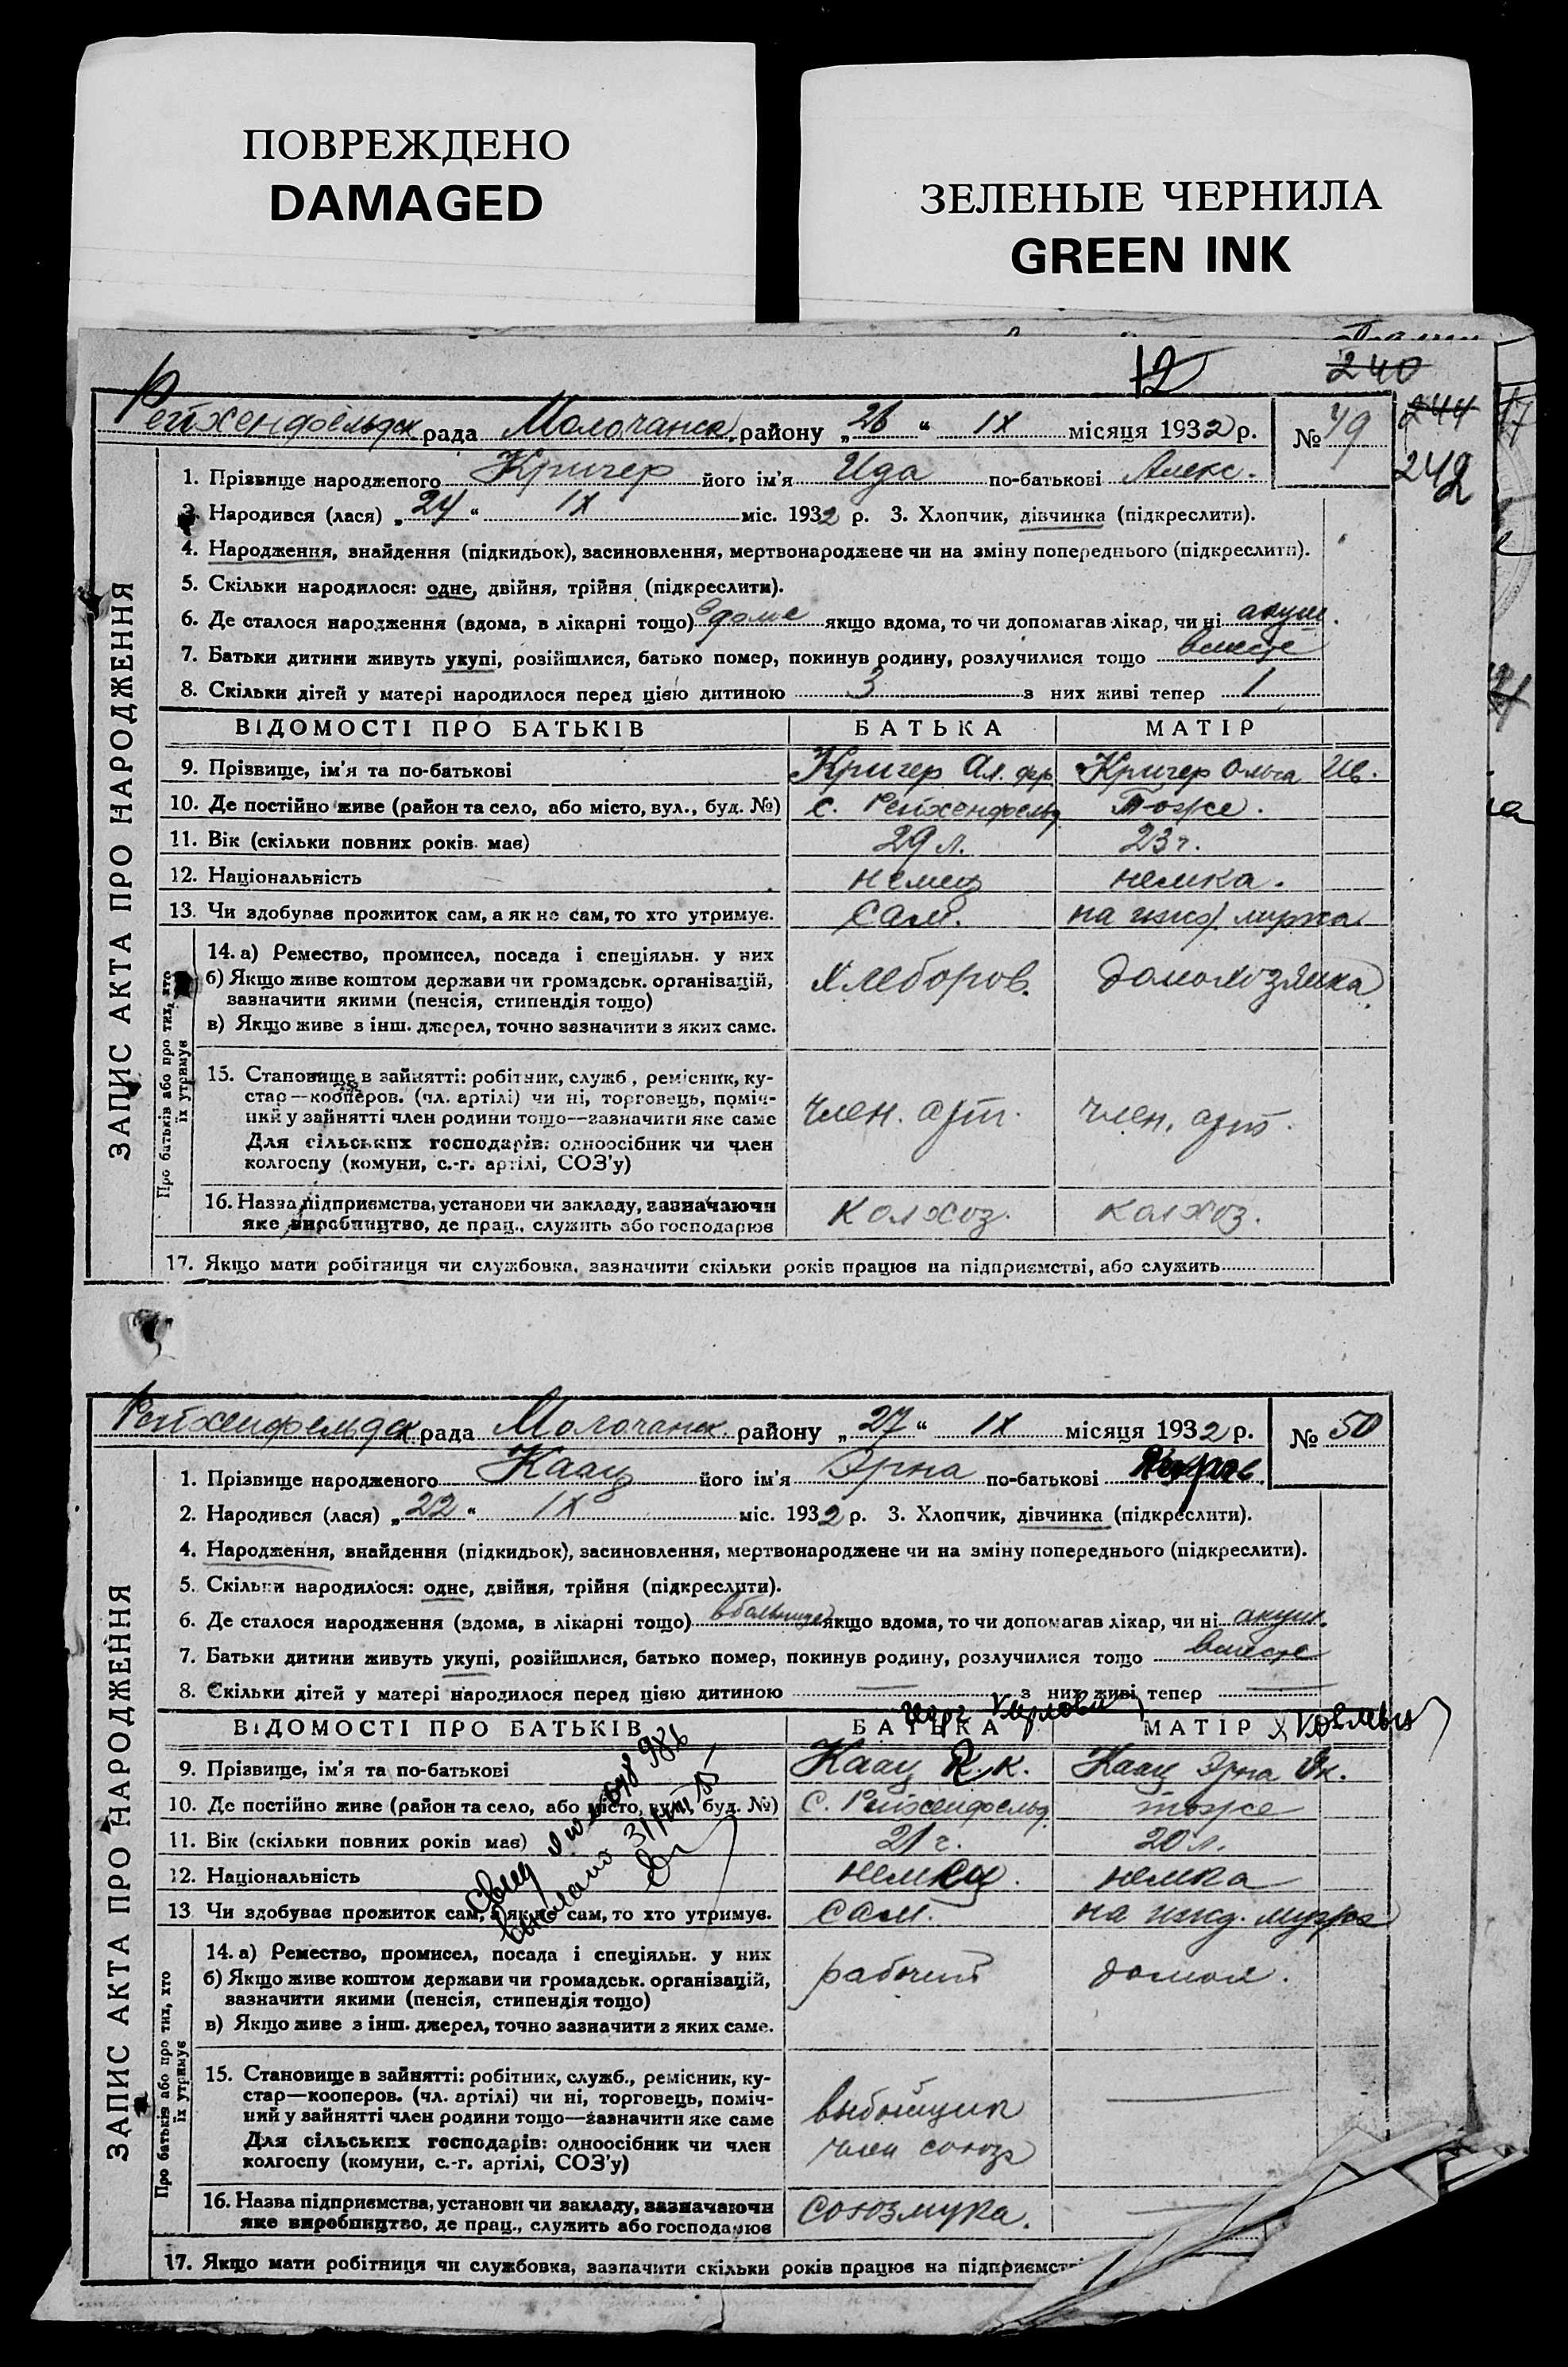 ПОВРЕЖДЕНО
DAMAGED
ЗЕЛЕНЫЕ ЧЕРНИЛА
GREEN INK
12
240
244
242
Рейхенфельдск рада Молочанск. району „26“ IX місяця 1932 р. № 49
ЗАПИС АКТА ПРО НАРОДЖЕННЯ
1. Прізвище народженого Кригер його ім'я Ида по-батькові Алекс.
2. Народився (лася) „24“ IX міс. 1932 р. 3. Хлопчик, дівчинка (підкреслити).
4. Народження, знайдення (підкидьок), засиновлення, мертвонароджене чи на зміну попереднього (підкреслити).
5. Скільки народилося: одне, двійня, трійня (підкреслити).
6. Де сталося народження (вдома, в лікарні тощо) дома якщо вдома, то чи допомагав лікар, чи ні акуш.
7. Батьки дитини живуть укупі, розійшлися, батько помер, покинув родину, розлучилися тощо вместе
8. Скільки дітей у матері народилося перед цією дитиною 3 з них живі тепер 1
ВІДОМОСТІ ПРО БАТЬКІВ БАТЬКА МАТІР
9. Прізвище, ім'я та по-батькові Кригер Ал. Кригер Ольга Ив.
10. Де постійно живе (район та село, або місто, вул., буд. №) с. Рейхенфельд тоже.
11. Вік (скільки повних років має) 29 л. 23 г.
12. Національність немец немка.
13. Чи здобуває прожиток сам, а як не сам, то хто утримує. сам. на ижд. мужа
Про батьків або про тих, хто їх утримує
14. а) Ремество, промисел, посада і спеціяльн. у них
б) Якщо живе коштом держави чи громадськ. організацій,
зазначити якими (пенсія, стипендія тощо) хлебороб. домохозяйка
в) Якщо живе з інш. джерел, точно зазначити з яких саме.
15. Становище в зайнятті: робітник, служб., ремісник, ку-
стар—кооперов. (чл. артілі) чи ні, торговець, поміч-
ний у зайнятті член родини тощо—зазначити яке саме член. арт. член. арт.
Для сільських господарів: одноосібник чи член
колгоспу (комуни, с.-г. артілі, СОЗ'у)
16. Назва підприємства, установи чи закладу, зазначаючи
яке виробництво, де прац., служить або господарює колхоз. колхоз.
17. Якщо мати робітниця чи службовка, зазначити скільки років працює на підприємстві, або служить
Рейхенфельдск рада Молочанск. району „27“ IX місяця 1932 р. № 50
ЗАПИС АКТА ПРО НАРОДЖЕННЯ
1. Прізвище народженого Каац його ім'я Эрна по-батькові
2. Народився (лася) „22“ IX міс. 1932 р. 3. Хлопчик, дівчинка (підкреслити).
4. Народження, знайдення (підкидьок), засиновлення, мертвонароджене чи на зміну попереднього (підкреслити).
5. Скільки народилося: одне, двійня, трійня (підкреслити).
6. Де сталося народження (вдома, в лікарні тощо) в больнице якщо вдома, то чи допомагав лікар, чи ні акуш.
7. Батьки дитини живуть укупі, розійшлися, батько помер, покинув родину, розлучилися тощо вместе
8. Скільки дітей у матері народилося перед цією дитиною — з них живі тепер —
ВІДОМОСТІ ПРО БАТЬКІВ БАТЬКА МАТІР
9. Прізвище, ім'я та по-батькові Каац К. К. Каац Эрна Як.
10. Де постійно живе (район та село, або місто, вул., буд. №) с. Рейхенфельд тоже
11. Вік (скільки повних років має) 21 г. 20 л.
12. Національність немец. немка
13. Чи здобуває прожиток сам, а як не сам, то хто утримує. сам. на ижд. мужа
Про батьків або про тих, хто їх утримує
14. а) Ремество, промисел, посада і спеціяльн. у них
б) Якщо живе коштом держави чи громадськ. організацій, рабочий домохоз.
зазначити якими (пенсія, стипендія тощо)
в) Якщо живе з інш. джерел, точно зазначити з яких саме.
15. Становище в зайнятті: робітник, служб., ремісник, ку-
стар—кооперов. (чл. артілі) чи ні, торговець, поміч-
ний у зайнятті член родини тощо—зазначити яке саме выбойщик —
Для сільських господарів: одноосібник чи член член союза
колгоспу (комуни, с.-г. артілі, СОЗ'у)
16. Назва підприємства, установи чи закладу, зазначаючи
яке виробництво, де прац., служить або господарює союзмука. —
17. Якщо мати робітниця чи службовка, зазначити скільки років працює на підприємстві